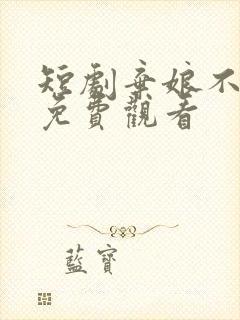 短劇棄娘不
免費觀看
藍寶